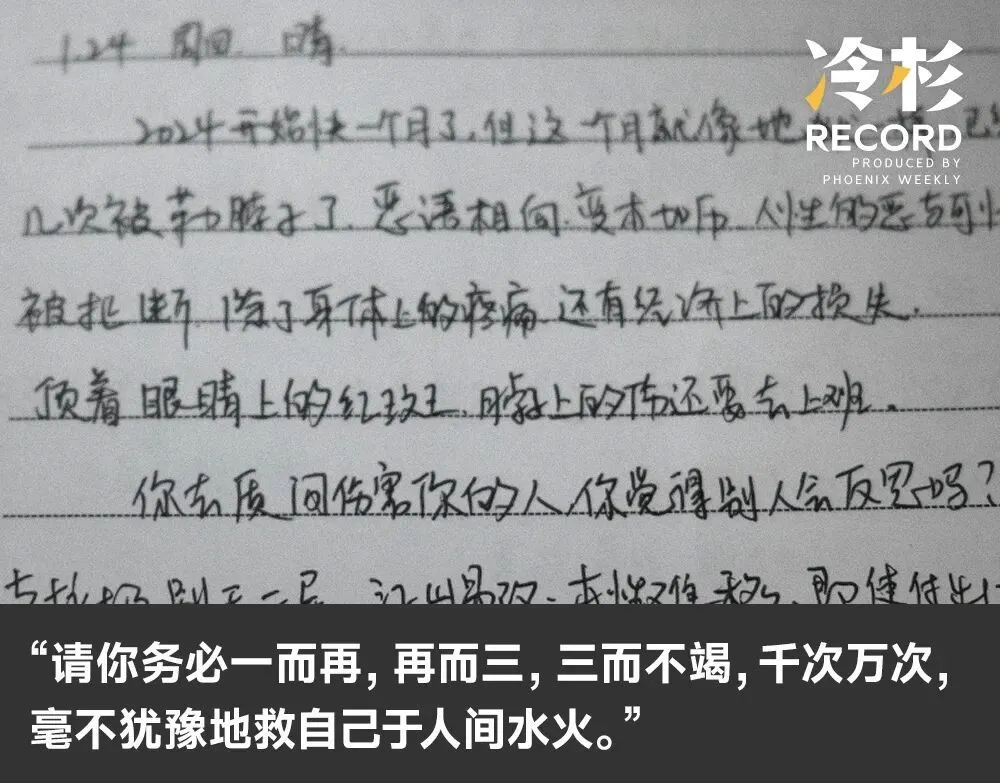 1.24 周四 晴.
冷杉
RECORD
PRODUCED BY
PHOENIX WEEKLY
2024开始快一个月了,但这一个月就像地
几次被勒脖子了.恶语相向.变本加厉.人性的恶与
被扼断.除了身体上的疼痛.还有经济上的损失.
顶着眼睛上的红斑.脖子上的伤还要去上班.
你去质问伤害你的人,你觉得别人会反思吗?
江山易改.本性难移.即使付出
“请你务必一而再,再而三,三而不竭,千次万次,
毫不犹豫地救自己于人间水火。”